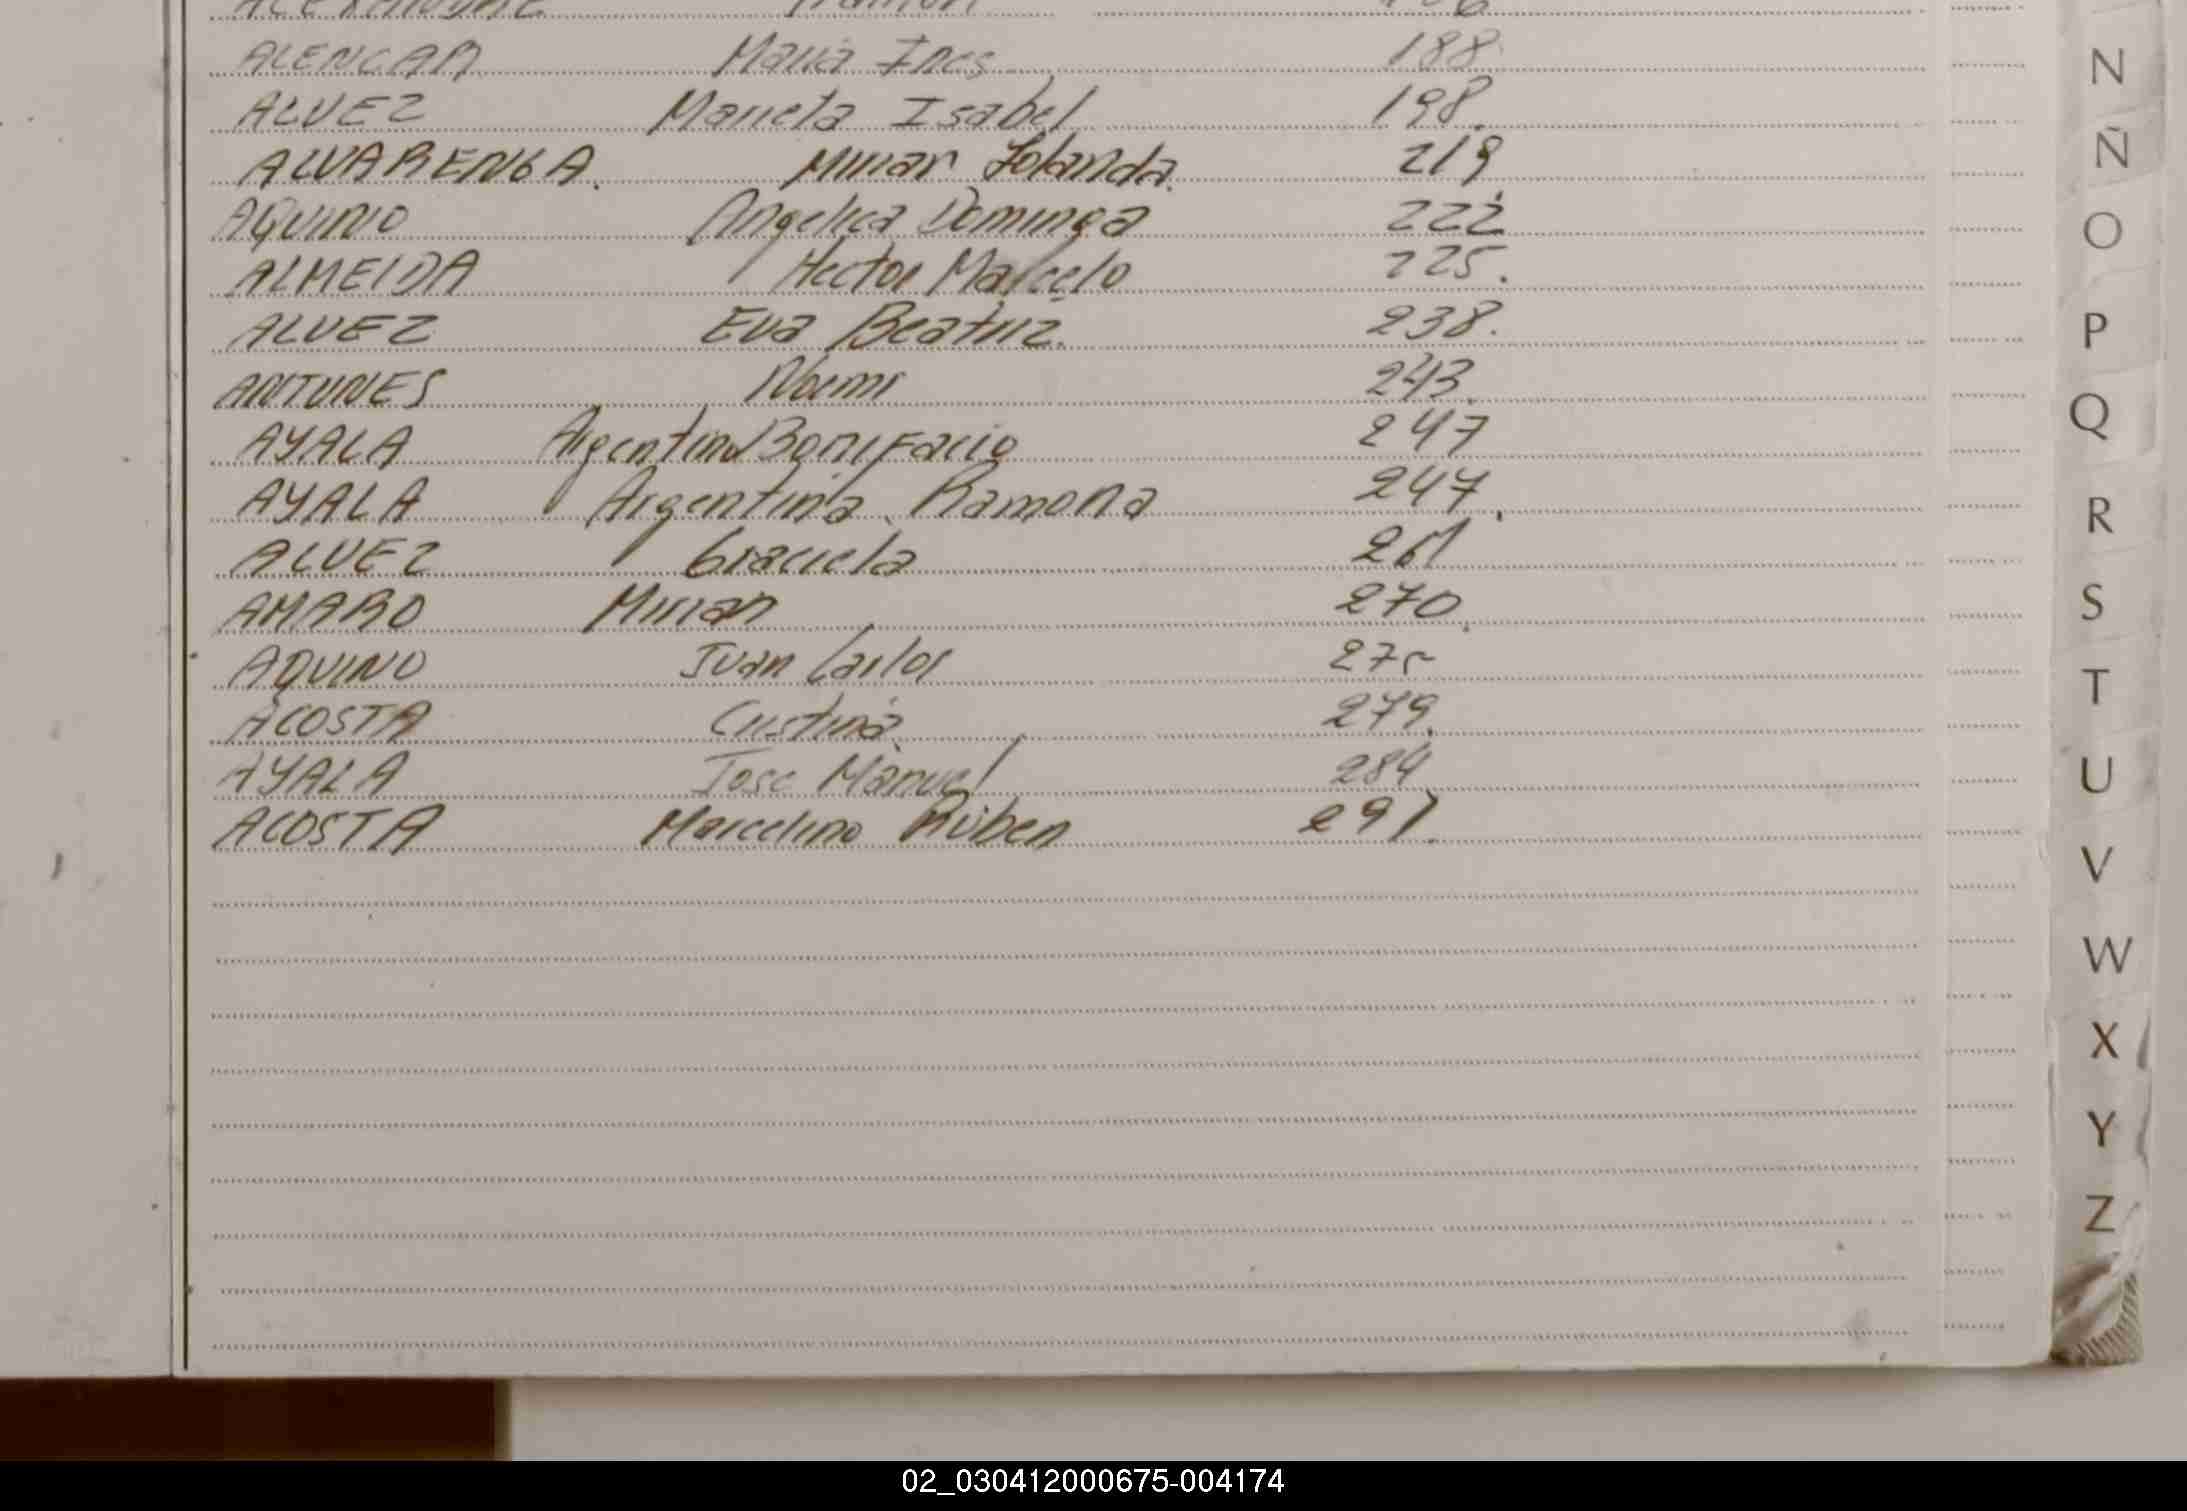 ALENCAR Maria Ines 188
ALVEZ Marieta Isabel 198.
ALVARENGA. Mirian Iolanda. 219
AQUINO Angelica Dominga 222
ALMEIDA Hector Marcelo 225.
ALVEZ Eva Beatriz. 238.
ANTUNES Noemi 243.
AYALA Argentino Bonifacio 247
AYALA Argentina Ramona 247.
ALVEZ Graciela 261
AMARO Mirian 270.
AQUINO Juan Carlos 275
ACOSTA Cristina 279.
AYALA Jose Manuel 284
ACOSTA Marcelino Ruben 291.
N
Ñ
O
P
Q
R
S
T
U
V
W
X
Y
Z
02_030412000675-004174